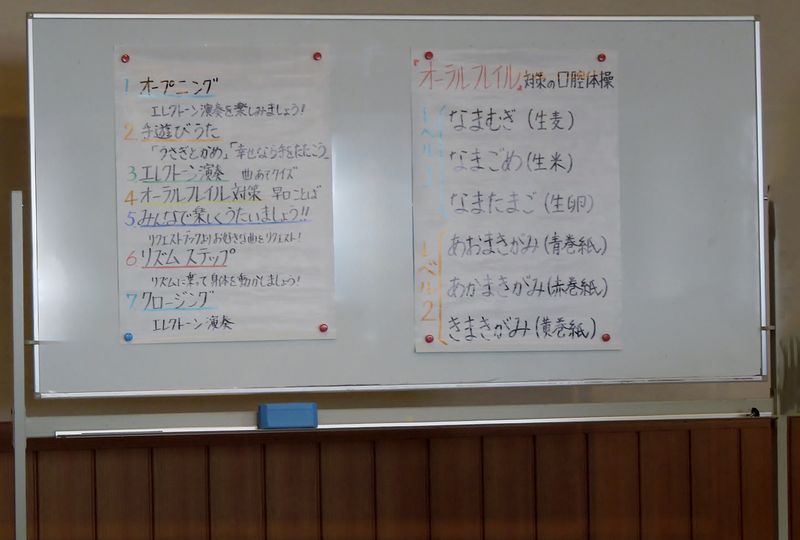 1 オープニング
エレクトーン演奏を楽しみましょう!
2 手遊びうた
「うさぎとかめ」「幸せなら手をたたこう」
3 エレクトーン演奏 曲あてクイズ
4 オーラルフレイル対策 早口ことば
5 みんなで楽しくうたいましょう!!
リクエストブックよりお好きな曲をリクエスト!
6 リズムステップ
リズムに乗って身体を動かしましょう!
7 クロージング
エレクトーン演奏
『オーラルフレイル』対策の口腔体操
レベル1
なまむぎ(生麦)
なまごめ(生米)
なまたまご(生卵)
レベル2
あおまきがみ(青巻紙)
あかまきがみ(赤巻紙)
きまきがみ(黄巻紙)